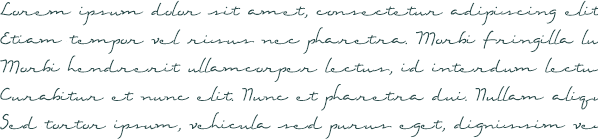 Lorem ipsum dolor sit amet, consectetur adipiscing elit
Etiam tempor vel risus nec pharetra. Morbi fringilla lu
Morbi hendrerit ullamcorper lectus, id interdum lectu
Curabitur et nunc elit. Nunc et pharetra dui. Nullam aliqu
Sed tortor ipsum, vehicula sed purus eget, dignissim ve